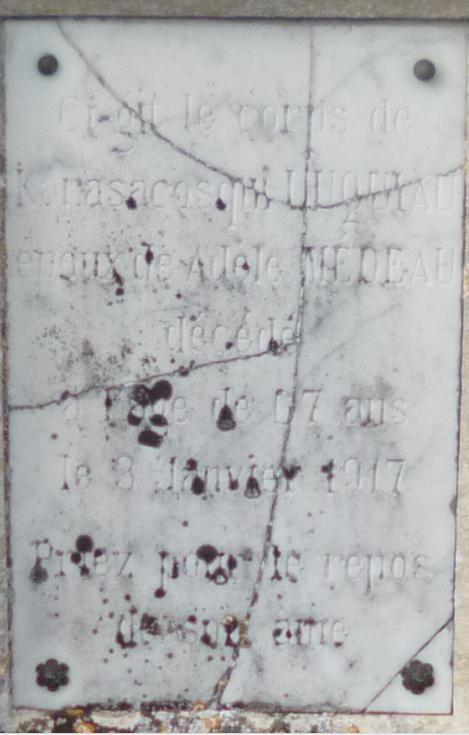 Ci-gît le corps de
époux de Adèle MEDEAU
décédé
à l'age de 67 ans
le 3 Janvier 1917
Priez pour le repos
de son âme